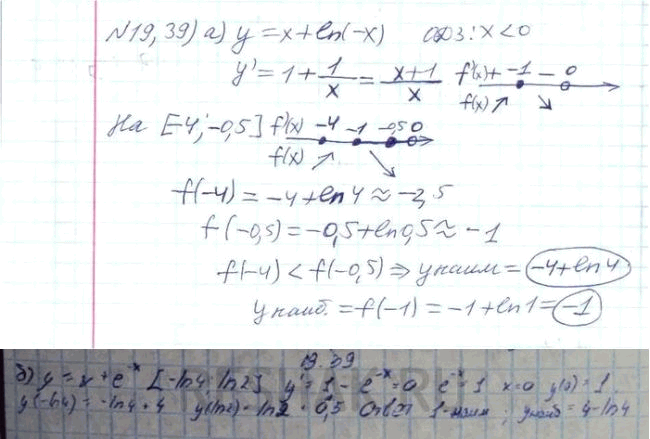 N19,39) а) y = x + ln(-x) одз: x < 0
y' = 1 + 1/x = (x+1)/x f'(x) + -1 - 0
f(x) ↗ ↘
На [-4; -0,5] f'(x) -4 -1 -0,5 0
f(x) ↗ ↘
f(-4) = -4 + ln 4 ≈ -2,5
f(-0,5) = -0,5 + ln 0,5 ≈ -1
f(-4) < f(-0,5) ⇒ y наим = -4 + ln 4
y наиб. = f(-1) = -1 + ln 1 = -1
19.39
б) y = x + e^-x [-ln4 ln2] y' = 1 - e^-x = 0 e^-x = 1 x = 0 y(0) = 1
y(-ln4) = -ln4 + 4 y(ln2) = ln2 + 0,5 Ответ 1-наим ; y наиб = 4 - ln4